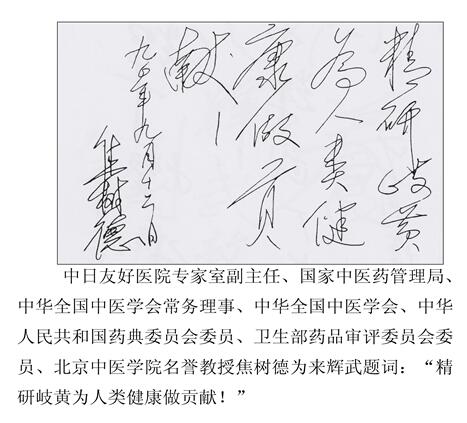 精研岐黄
為人类健
康做贡
献！
九〇年九月十二日
焦树德
中日友好医院专家室副主任、国家中医药管理局、
中华全国中医学会常务理事、中华全国中医学会、中华
人民共和国药典委员会委员、卫生部药品审评委员会委
员、北京中医学院名誉教授焦树德为来辉武题词：“精
研岐黄为人类健康做贡献！”